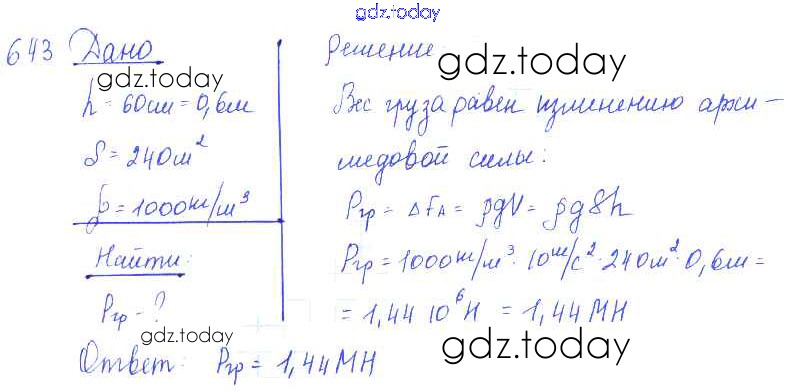 gdz.today
643 Дано
gdz.today
h = 60см = 0,6м
S = 240м²
ρ = 1000кг/м³
Найти:
Pгр - ?
gdz.today
Решение:
gdz.today
Вес груза равен изменению архи-
медовой силы:
Pгр = ΔFA = ρgV = ρgSh
Pгр = 1000кг/м³ · 10м/с² · 240м² · 0,6м =
= 1,44 10⁶Н = 1,44 МН
gdz.today
Ответ: Pгр = 1,44 МН